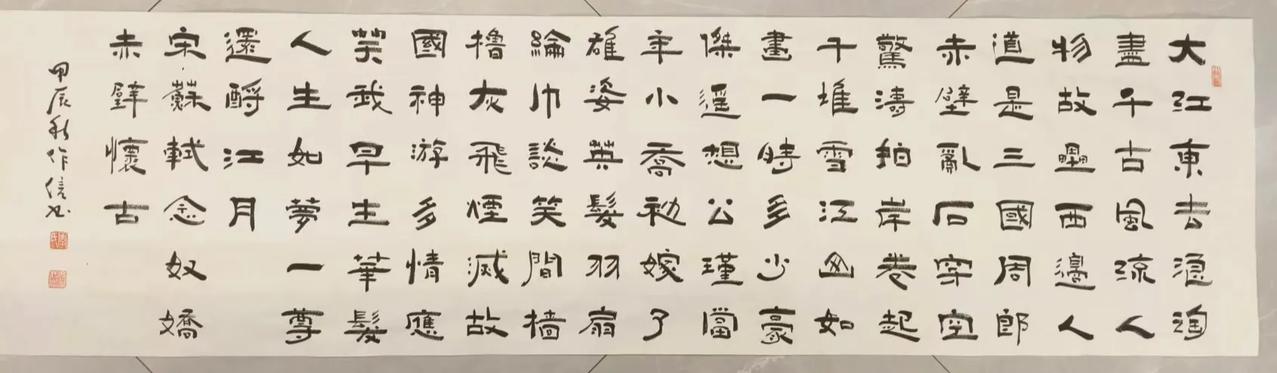 大江東去浪淘
盡千古風流人
物故壘西邊人
道是三國周郎
赤壁亂石穿空
驚濤拍岸卷起
千堆雪江山如
畫一時多少豪
傑遥想公瑾當
年小喬初嫁了
雄姿英髮羽扇
綸巾談笑間檣
櫓灰飛煙滅故
國神游多情應
笑我早生華髮
人生如夢一尊
還酹江月
宋蘇軾念奴嬌
赤壁懷古
甲辰秋作信